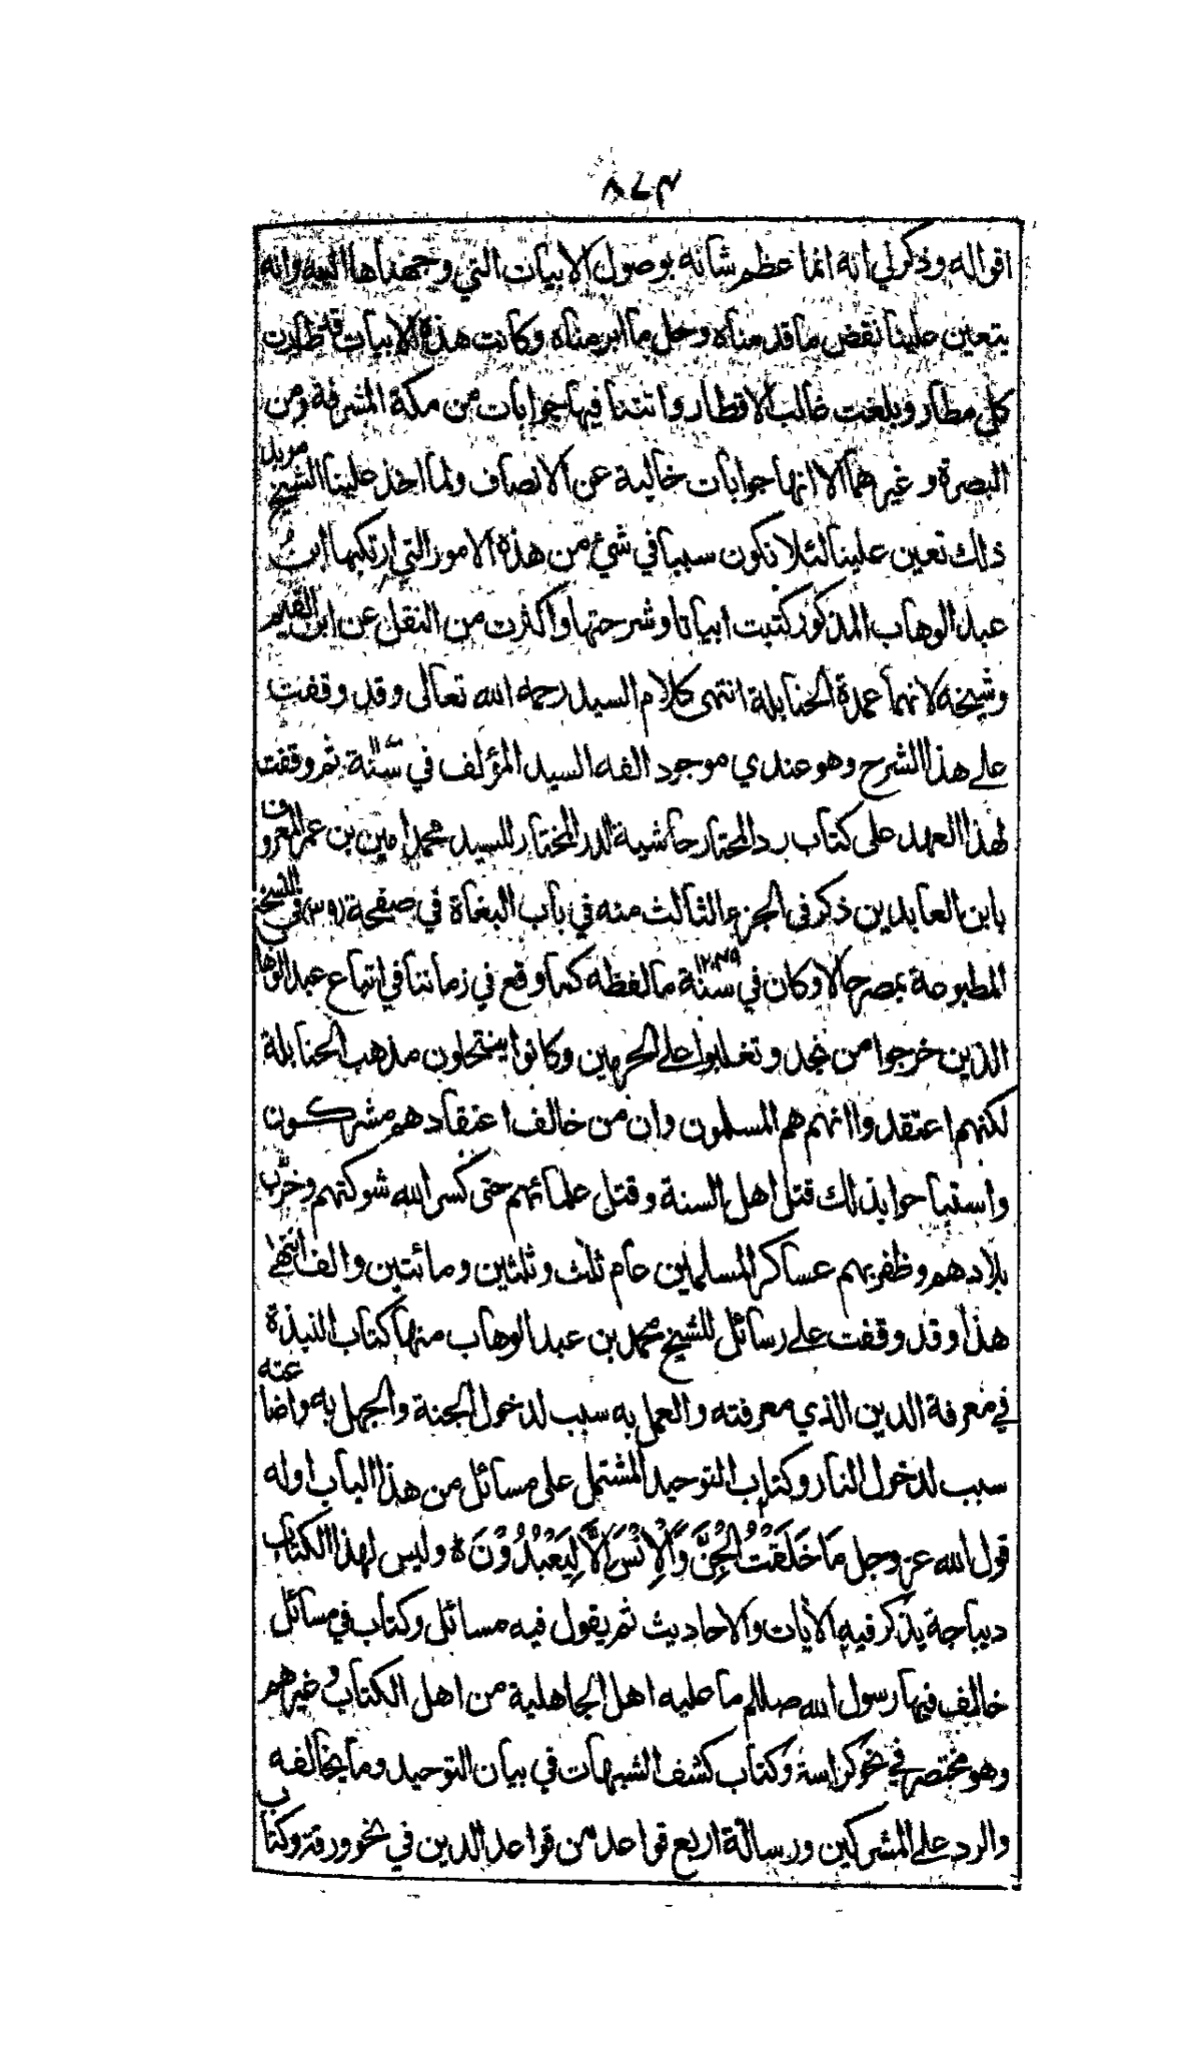 ٨٧٣
اقواله وذكر لي انه انما عظم شانه بوصول الابيات التي وجهناها اليه وانه
يتعين علينا نقض ما قدمناه وحل ما ابرمناه وكانت هذه الابيات قد طارت
كل مطار وبلغت غالب الاقطار واتتنا فيها جوابات من مكة المشرفة ومن
البصرة وغيرهما الا انها جوابات خالية عن الانصاف ولما اخذ علينا الشيخ مربد
ذلك تعين علينا لئلا نكون سببا في شيئ من هذه الامور التي ارتكبها ابن
عبد الوهاب المذكور كتبت ابياتا وشرحتها واكثرت من النقل عن ابن القيم
وشيخه لانهما عمدة الحنابلة انتهى كلام السيد رحمه الله تعالى وقد وقفت
على هذا الشرح وهو عندي موجود الفه السيد المؤلف في سنة ثم وقفت
لهذا العهد على كتاب رد المحتار حاشية الدر المختار للسيد محمد امين بن عمر المعروف
بابن العابدين ذكر فى الجزء الثالث منه في باب البغاة في صفحة في النسخة
المطبوعة بمصر حالا وكان في سنة ١٢٤٩ ما لفظه كما وقع في زماننا في اتباع عبد الوهاب
الذين خرجوا من نجد وتغلبوا على الحرمين وكانوا ينتحلون مذهب الحنابلة
لكنهم اعتقدوا انهم هم المسلمون وان من خالف اعتقادهم مشركون
واستباحوا بذلك قتل اهل السنة وقتل علمائهم حتى كسر الله شوكتهم وخرّب
بلادهم وظفر بهم عساكر المسلمين عام ثلث وثلثين ومائتين والف انتهى
هذا وقد وقفت على رسائل للشيخ محمد بن عبد الوهاب منها كتاب النبذة
في معرفة الدين الذي معرفته والعمل به سبب لدخول الجنة والجهل به واضاعته
سبب لدخول النار وكتاب التوحيد المشتمل على مسائل من هذا الباب اوله
قول الله عز وجل مَا خَلَقْتُ الْجِنَّ وَالْاِنْسَ اِلَّا لِيَعْبُدُوْنَ ہ وليس لهذا الكتاب
ديباجة يذكر فيه الآيات والاحاديث ثم يقول فيه مسائل وكتاب في مسائل
خالف فيها رسول الله صللم ما عليه اهل الجاهلية من اهل الكتاب وغيرهم
وهو مختصر في نحو كراسة وكتاب كشف الشبهات في بيان التوحيد وما يخالفه
والرد على المشركين ورسالة اربع قواعد من قواعد الدين في نحو ورقة وكتاب